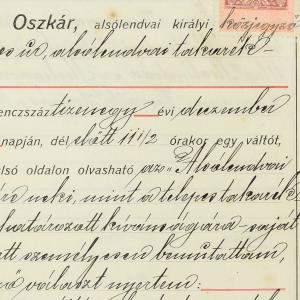 Oszkár, alsólendvai királyi közjegyző
es úr, alsólendvai takarék-
enczszáz tizenegy évi deczember
napján, dél előtt 11 1/2 órakor egy váltót,
lső oldalon olvasható az "Alsólendvai
neki, mint a telepes takarék
határozott kivánságára saját
tt személyesen bemutattam,
nő választ nyertem: